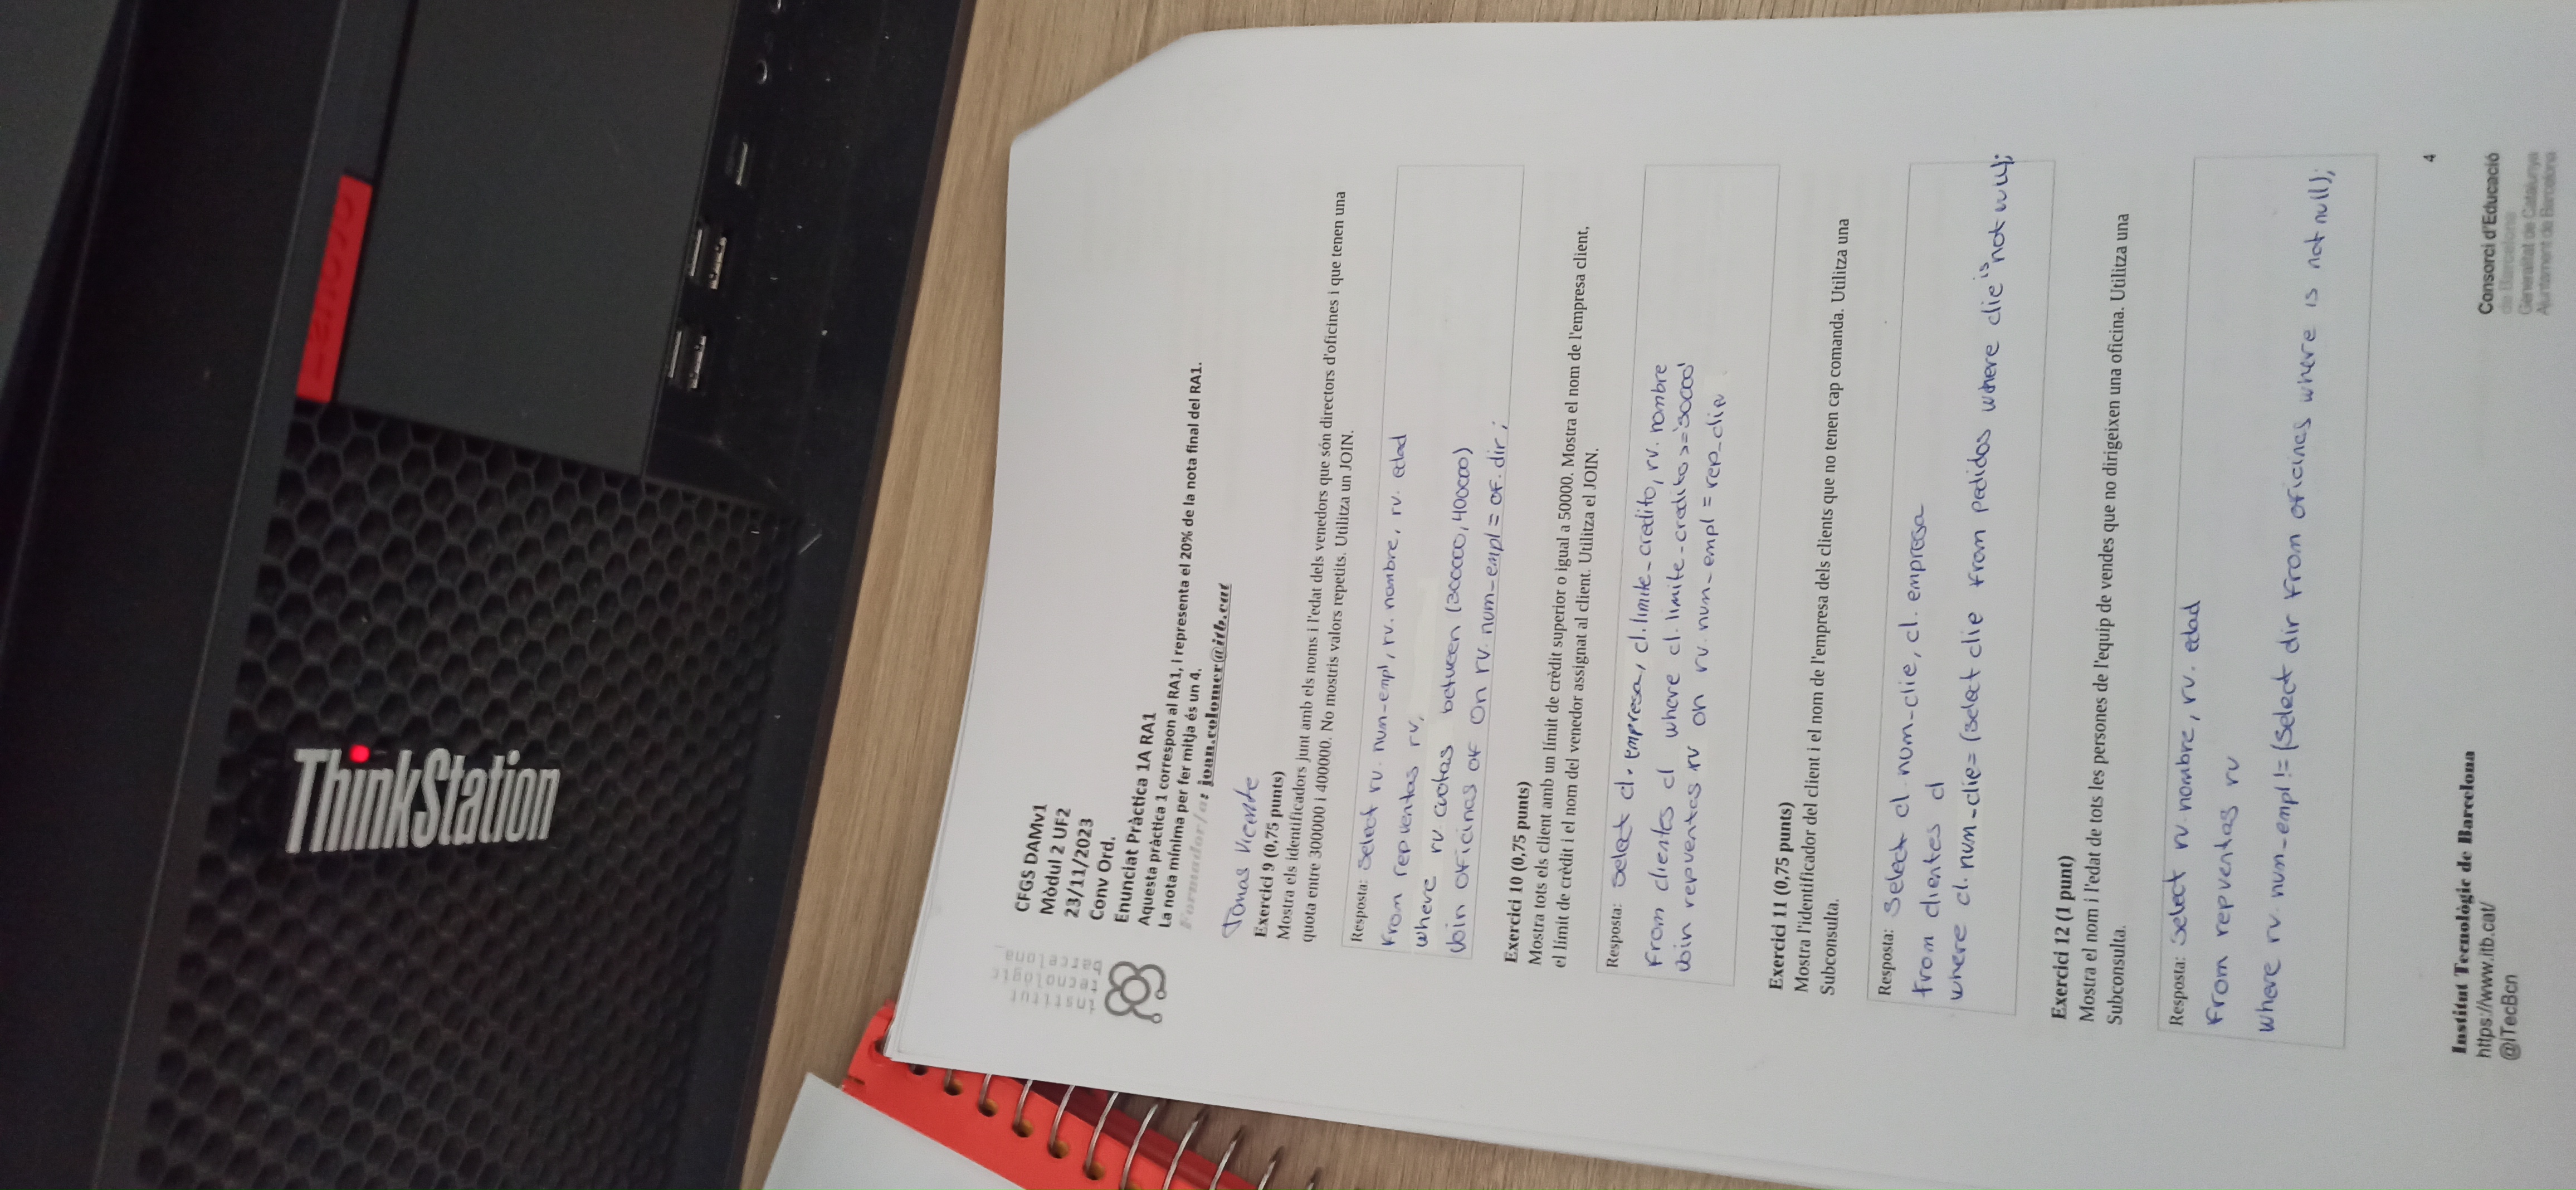 ThinkStation
institut
tecnològic
barcelona_
CFGS DAMv1
Mòdul 2 UF2
23/11/2023
Conv Ord.
Enunciat Pràctica 1A RA1
Aquesta pràctica 1 correspon al RA1, i representa el 20% de la nota final del RA1.
La nota mínima per fer mitja és un 4.
Formador/a: joan.colomer@itb.cat
Tomas Vicente
Exercici 9 (0,75 punts)
Mostra els identificadors junt amb els noms i l'edat dels venedors que són directors d'oficines i que tenen una
quota entre 300000 i 400000. No mostris valors repetits. Utilitza un JOIN.
Resposta: Select rv. num_empl, rv. nombre, rv. edad
From repventas rv,
where rv cuotas between (300000, 400000)
Join oficinas of On rv. num_empl = of. dir ;
Exercici 10 (0,75 punts)
Mostra tots els client amb un límit de crèdit superior o igual a 50000. Mostra el nom de l'empresa client,
el límit de crèdit i el nom del venedor assignat al client. Utilitza el JOIN.
Resposta: Select cl. empresa, cl. limite_credito, rv. nombre
From clientes cl where cl. limite_credito >= '50000'
Join repventas rv on rv. num_empl = rep_clie
Exercici 11 (0,75 punts)
Mostra l'identificador del client i el nom de l'empresa dels clients que no tenen cap comanda. Utilitza una
Subconsulta.
Resposta: Select cl num_clie, cl. empresa
From clientes cl
where cl. num_clie= (select clie from pedidos where clie is not null);
Exercici 12 (1 punt)
Mostra el nom i l'edat de tots les persones de l'equip de vendes que no dirigeixen una oficina. Utilitza una
Subconsulta.
Resposta: Select rv. nombre, rv. edad
From repventas rv
where rv. num_empl != (Select dir from oficinas where is not null);
4
Institut Tecnològic de Barcelona
https://www.itb.cat/
@iTecBcn
Consorci d'Educació
de Barcelona
Generalitat de Catalunya
Ajuntament de Barcelona